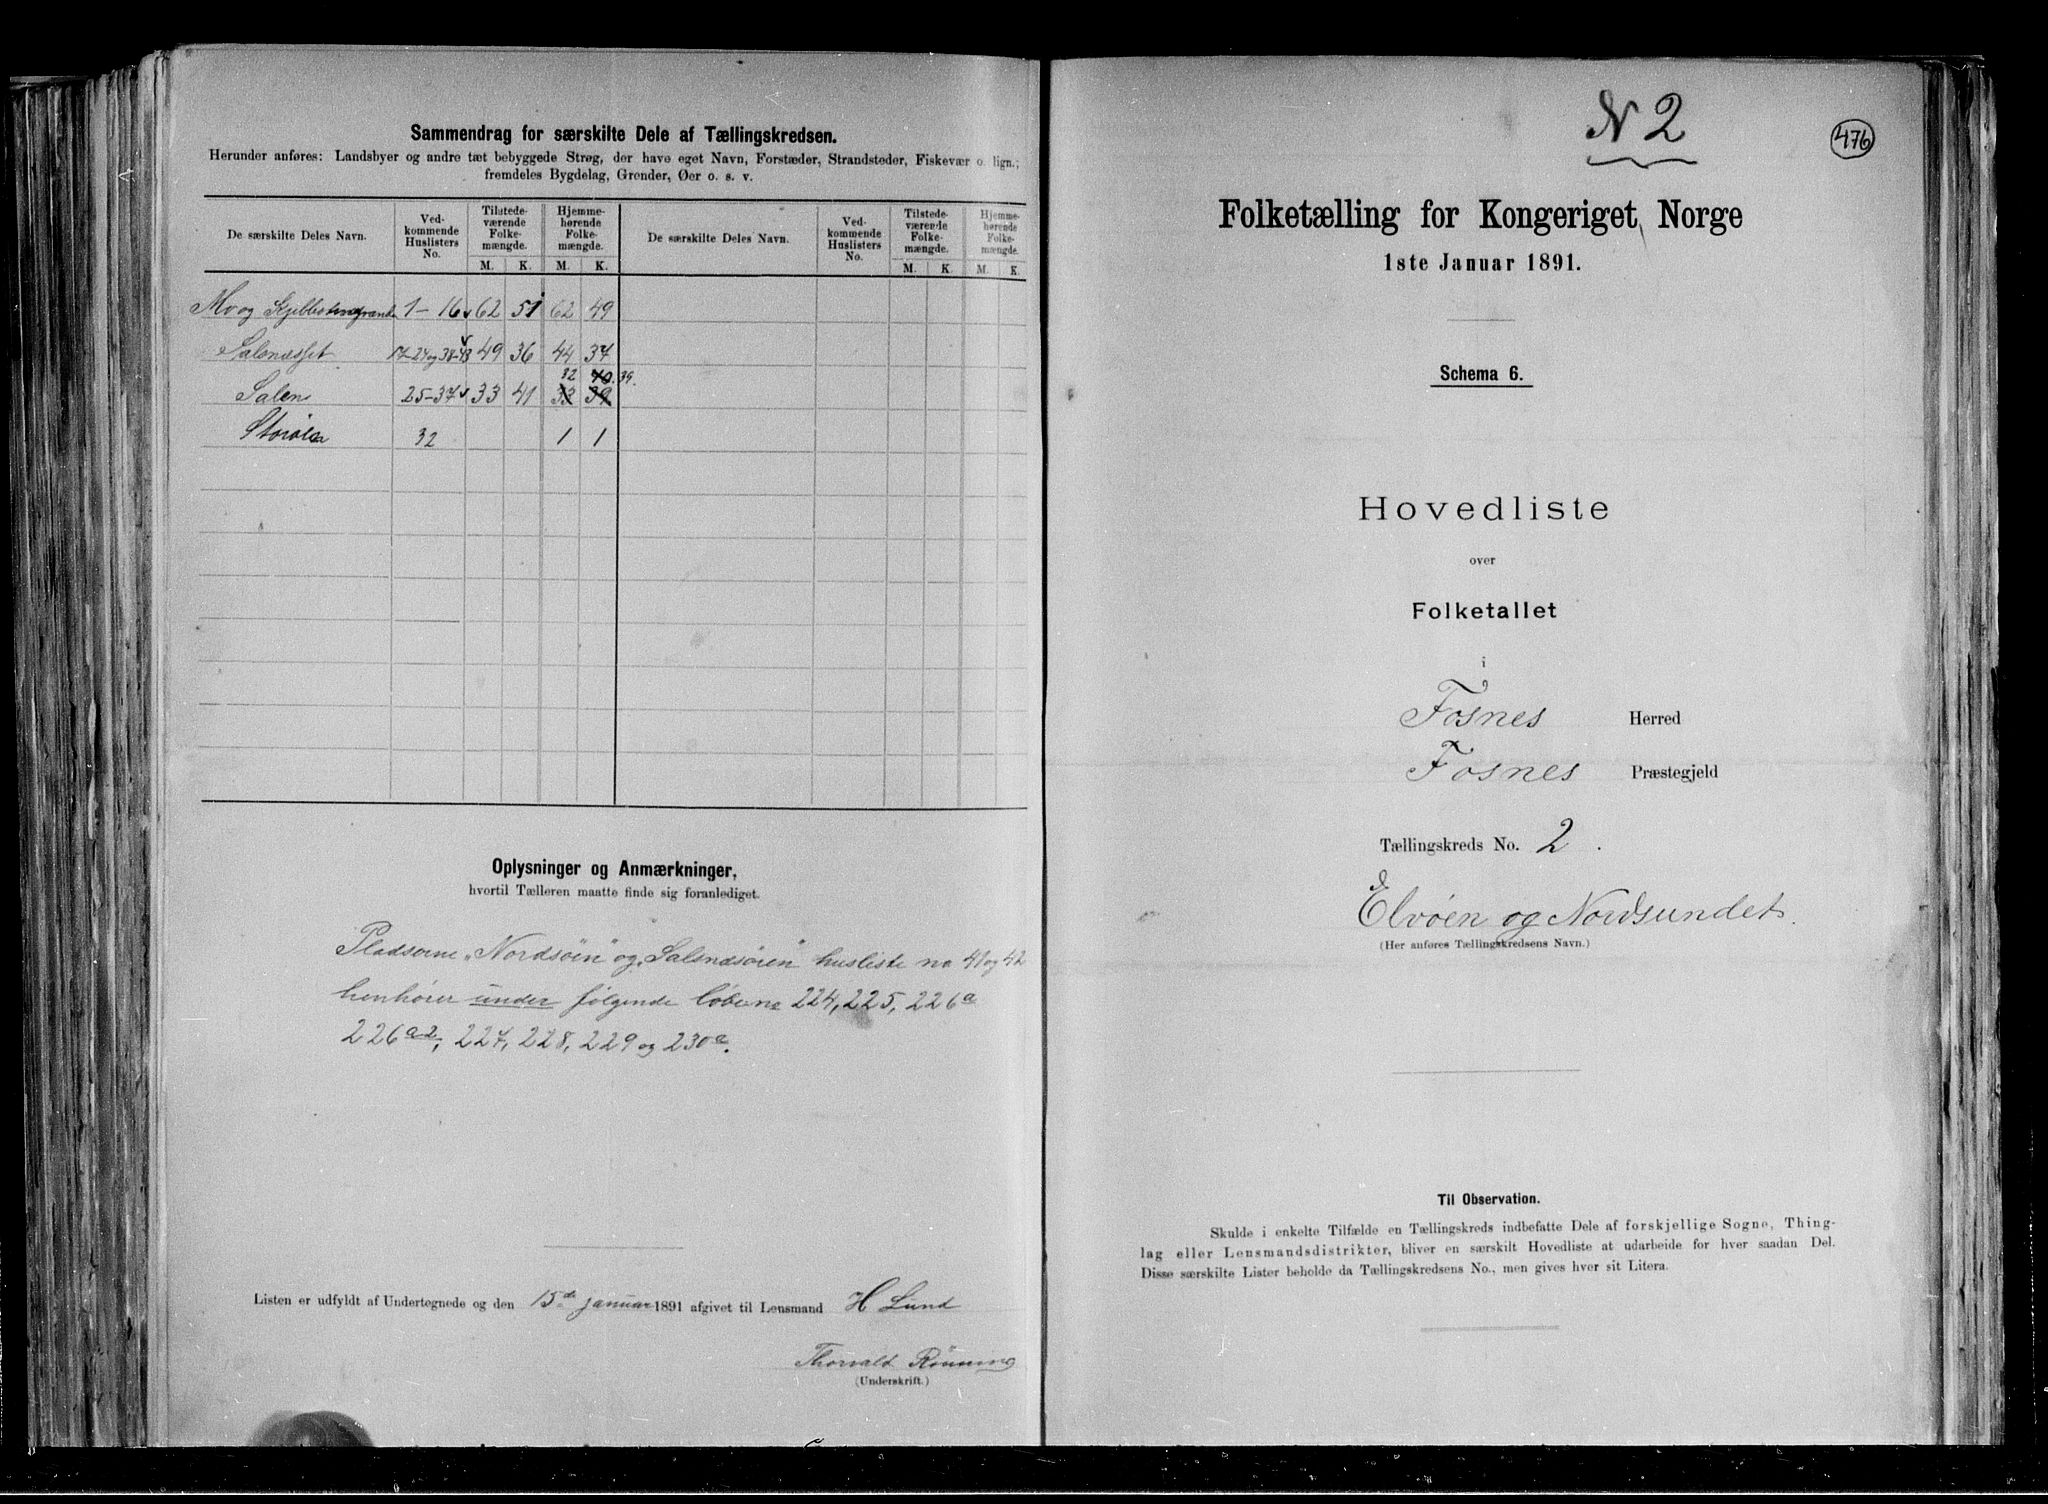 Sammendrag for særskilte Dele af Tællingskredsen.
Herunder anføres: Landsbyer og andre tæt bebyggede Strøg, der have eget Navn, Forstæder, Strandsteder, Fiskevær o. lign.;
fremdeles Bygdelag, Grender, Øer o. s. v.
De særskilte Deles Navn. Ved-kommende Huslisters No. Tilstede-værende Folke-mængde. Hjemme-hørende Folke-mængde. De særskilte Deles Navn. Ved-kommende Huslisters No. Tilstede-værende Folke-mængde. Hjemme-hørende Folke-mængde.
M. K. M. K. M. K. M. K.
Mo og 1-16 62 51 62 49
Salsnæsset 17-24 og 38-43 49 36 44 37
32 40. 39.
Salen 25-37 33 41 33 39
32 1 1
Oplysninger og Anmærkninger,
hvortil Tælleren maatte finde sig foranlediget.
Pladserne "Nordsøin" og "Salsnæsøien" husliste no 41 og 42
henhører under følgende løbene 224, 225, 226a
226a2, 227, 228, 229 og 230a.
Listen er udfyldt af Undertegnede og den 15de januar 1891 afgivet til Lensmand H Lund
Thorvald Rönning
(Underskrift.)
N 2
476
Folketælling for Kongeriget Norge
1ste Januar 1891.
Schema 6.
Hovedliste
over
Folketallet
i
Fosnes Herred
Fosnes Præstegjeld
Tællingskreds No. 2.
Elvøen og Nordsundet.
(Her anføres Tællingskredsens Navn.)
Til Observation.
Skulde i enkelte Tilfælde en Tællingskreds indbefatte Dele af forskjellige Sogne, Thing-
lag eller Lensmandsdistrikter, bliver en særskilt Hovedliste at udarbeide for hver saadan Del.
Disse særskilte Lister beholde da Tællingskredsens No., men gives hver sit Litera.